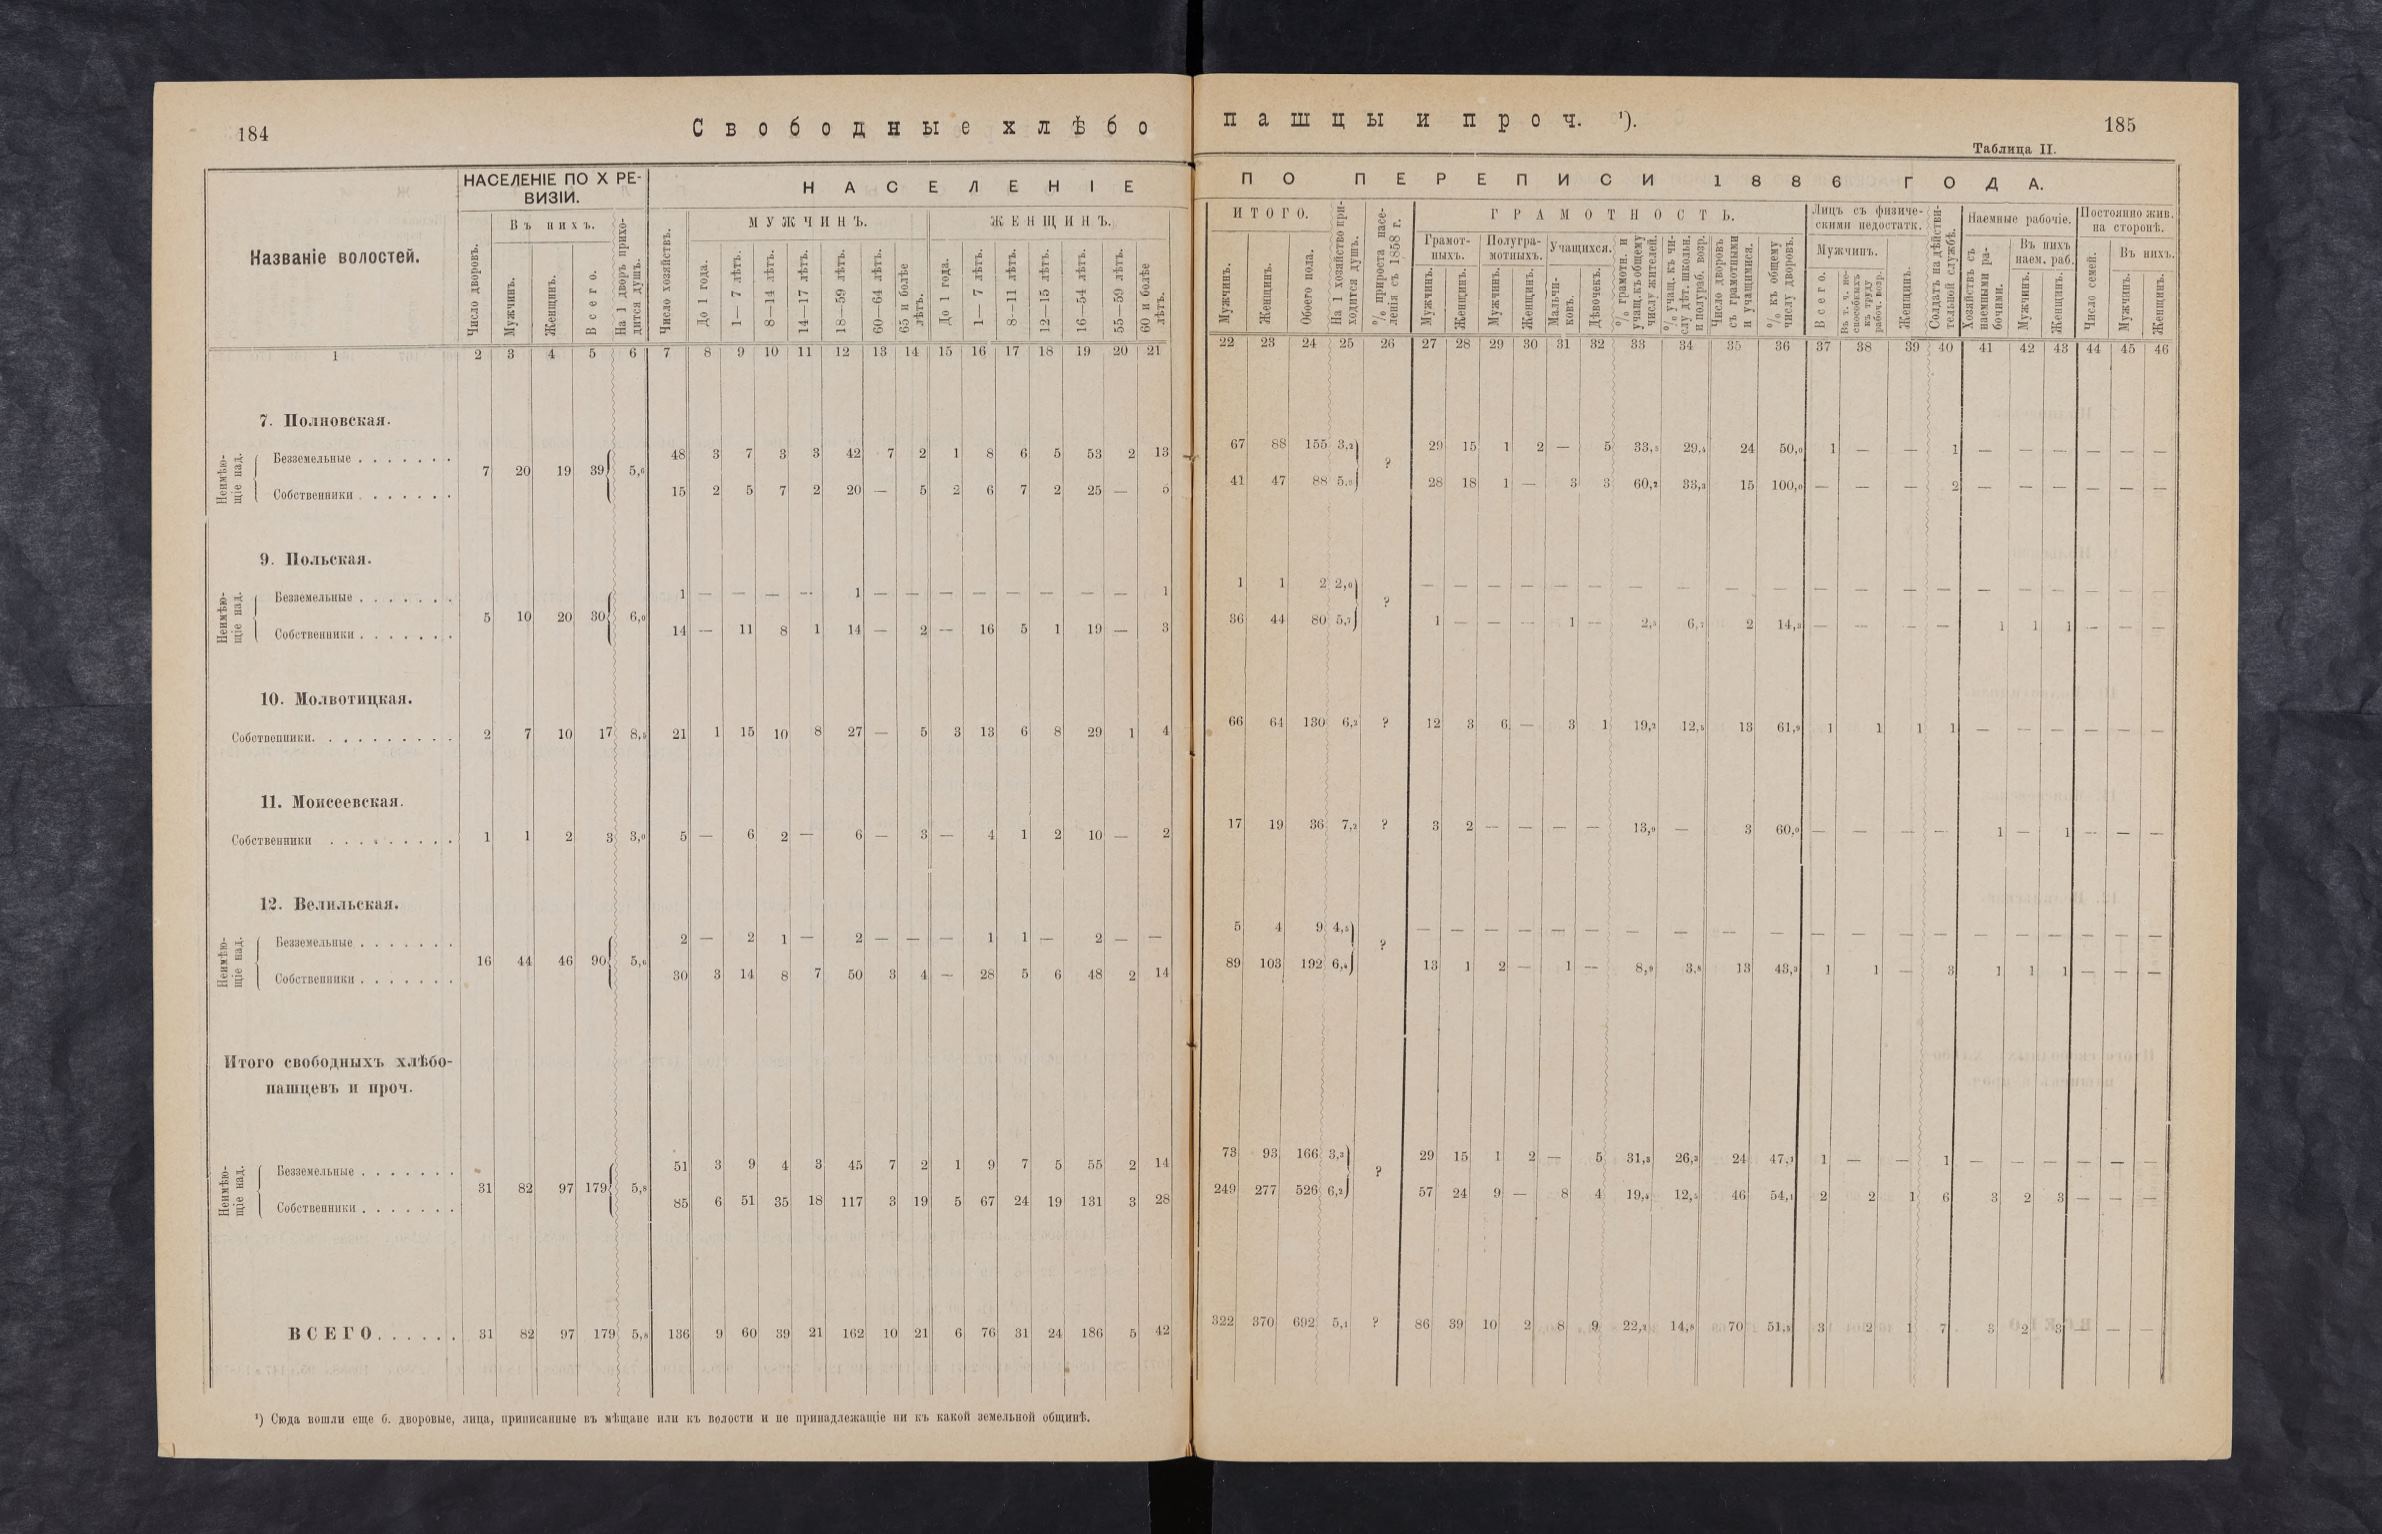 184
Свободные хлѣбо
пашцы и проч. ¹).
185
Таблица II.
Названіе волостей.
НАСЕЛЕНІЕ ПО X РЕ-
ВИЗІИ.
Число дворовъ.
Въ нихъ.
Мужчинъ.
Женщинъ.
Всего.
На 1 дворъ прихо-
дится душъ.
НАСЕЛЕНІЕ
ПО ПЕРЕПИСИ 1886 ГОДА.
Число хозяйствъ.
МУЖЧИНЪ.
До 1 года.
1—7 лѣтъ.
8—14 лѣтъ.
14—17 лѣтъ.
18—59 лѣтъ.
60—64 лѣтъ.
65 и болѣе
лѣтъ.
ЖЕНЩИНЪ.
До 1 года.
1—7 лѣтъ.
8—11 лѣтъ.
12—15 лѣтъ.
16—54 лѣтъ.
55—59 лѣтъ.
60 и болѣе
лѣтъ.
ИТОГО.
Мужчинъ.
Женщинъ.
Обоего пола.
На 1 хозяйство при-
ходится душъ.
% прироста насе-
ленія съ 1858 г.
ГРАМОТНОСТЬ.
Грамот-
ныхъ.
Мужчинъ.
Женщинъ.
Полугра-
мотныхъ.
Мужчинъ.
Женщинъ.
Учащихся.
Мальчи-
ковъ.
Дѣвочекъ.
% грамотн. и
учащ. къ общему
числу жителей.
% учащ. къ чи-
слу дѣт. школьн.
и полураб. возр.
Число дворовъ
съ грамотными
и учащимися.
% къ общему
числу дворовъ.
Лицъ съ физиче-
скими недостатк.
Мужчинъ.
Всего.
Въ т. ч. не-
способныхъ
къ труду
рабоч. возр.
Женщинъ.
Солдатъ на дѣйстви-
тельной службѣ.
Наемные рабочіе.
Хозяйствъ съ
наемными ра-
бочими.
Въ нихъ
наем. раб.
Мужчинъ.
Женщинъ.
Постоянно жив.
на сторонѣ.
Число семей.
Въ нихъ.
Мужчинъ.
Женщинъ.
1 2 3 4 5 6 7 8 9 10 11 12 13 14 15 16 17 18 19 20 21 22 23 24 25 26 27 28 29 30 31 32 33 34 35 36 37 38 39 40 41 42 43 44 45 46
7. Полновская.
Неимѣю-
щіе над.
7 20 19 39 5,6
Безземельные . . . . . . . 48 3 7 3 3 42 7 2 1 8 6 5 53 2 13 67 88 155 3,2 ? 29 15 1 2 — 5 33,5 29,4 24 50,0 1 — — 1 — — — — — —
Собственники . . . . . . . 15 2 5 7 2 20 — 5 2 6 7 2 25 — 5 41 47 88 5,9 28 18 1 — 3 3 60,2 33,3 15 100,0 — — — 2 — — — — — —
9. Польская.
Неимѣю-
щіе над.
5 10 20 30 6,0
Безземельные . . . . . . . 1 — — — — 1 — — — — — — — — 1 1 1 2 2,0 ? — — — — — — — — — — — — — — — — — — — —
Собственники . . . . . . . 14 — 11 8 1 14 — 2 — 16 5 1 19 — 3 36 44 80 5,7 1 — — — 1 — 2,5 6,7 2 14,3 — — — — 1 1 1 — — —
10. Молвотицкая.
Собственники. . . . . . . . . . 2 7 10 17 8,5 21 1 15 10 8 27 — 5 3 13 6 8 29 1 4 66 64 130 6,2 ? 12 3 6 — 3 1 19,2 12,5 13 61,9 1 1 1 1 — — — — — —
11. Моисеевская.
Собственники . . . . . . . . . 1 1 2 3 3,0 5 — 6 2 — 6 — 3 — 4 1 2 10 — 2 17 19 36 7,2 ? 3 2 — — — — 13,9 — 3 60,0 — — — — 1 — 1 — — —
12. Велильская.
Неимѣю-
щіе над.
16 44 46 90 5,6
Безземельные . . . . . . . 2 — 2 1 — 2 — — — 1 1 — 2 — — 5 4 9 4,5 ? — — — — — — — — — — — — — — — — — — — —
Собственники . . . . . . . 30 3 14 8 7 50 3 4 — 28 5 6 48 2 14 89 103 192 6,4 13 1 2 — 1 — 8,9 3,8 13 43,3 1 1 — 3 1 1 1 — — —
Итого свободныхъ хлѣбо-
пашцевъ и проч.
Неимѣю-
щіе над.
31 82 97 179 5,8
Безземельные . . . . . . . 51 3 9 4 3 45 7 2 1 9 7 5 55 2 14 73 93 166 3,3 ? 29 15 1 2 — 5 31,3 26,3 24 47,1 1 — — 1 — — — — — —
Собственники . . . . . . . 85 6 51 35 18 117 3 19 5 67 24 19 131 3 28 249 277 526 6,2 57 24 9 — 8 4 19,4 12,5 46 54,1 2 2 1 6 3 2 3 — — —
ВСЕГО. . . . . . 31 82 97 179 5,8 136 9 60 39 21 162 10 21 6 76 31 24 186 5 42 322 370 692 5,1 ? 86 39 10 2 8 9 22,2 14,8 70 51,5 3 2 1 7 3 2 3 — — —
¹) Сюда вошли еще б. дворовые, лица, приписанные въ мѣщане или къ волости и не принадлежащіе ни къ какой земельной общинѣ.